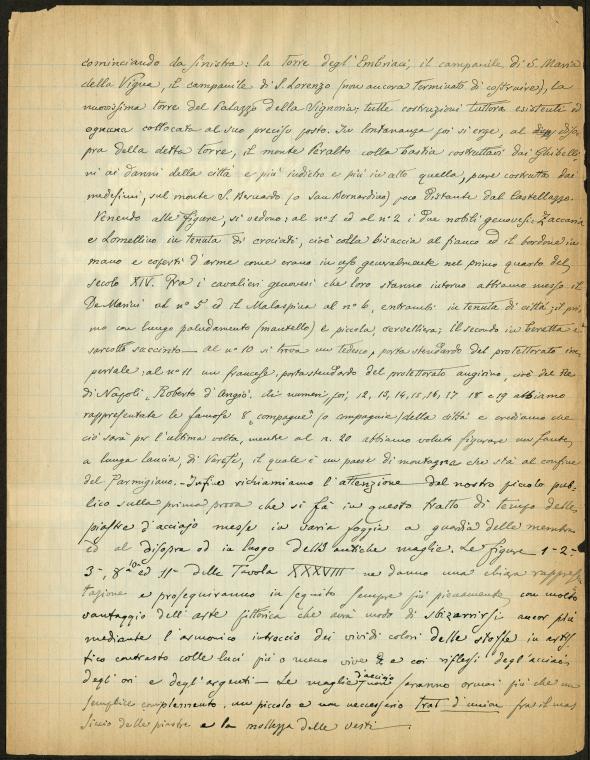 cominciando da sinistra: la torre degl'Embriaci, il campanile di S. Maria
della Vigna, il campanile di S. Lorenzo (non ancora terminato di costruire), la
nuovissima torre del Palazzo della Signoria; tutte costruzioni tuttora esistenti ed
ognuna collocata al suo preciso posto. In lontananza poi si erge, al diso-
pra della detta torre, il monte Peralto colla bastia costruttavi dai Ghibelli-
ni ai danni della città e più indietro e più in alto quella, pure costrutta dai
medesimi, sul monte S. Bernardo (o San Bernardino) poco distante dal Castellazzo.
Venendo alle figure, si vedono: al n° 1 ed al n° 2 i due nobili genovesi: Zaccaria
e Lomellino in tenuta di crociati, cioè colla bisaccia al fianco ed il bordone in
mano e coperti d'arme come erano in uso generalmente nel primo quarto del
secolo XIV. Fra i cavalieri genovesi che loro stanno intorno abbiamo messo il
De Marini al n° 5 ed il Malaspina al n° 6, entrambi in tenuta di città; il pri-
mo con lungo paludamento (mantello) e piccola cervelliera; il secondo in berretta e
sarcotto succinto — al n° 10 si trova un tedesco, porta stendardo del protettorato im-
periale; al n° 11 un francese, portastendardo del protettorato angioino, cioè del Re
di Napoli, Roberto d'Angiò. Ai numeri, poi, 12, 13, 14, 15, 16, 17 18 e 19 abbiamo
rappresentate le famose 8 "compagne" (o compagnie) della città e crediamo che
ciò sarà per l'ultima volta, mentre al n. 20 abbiamo voluto figurare un fante,
a lunga lancia, di Varese, il quale è un paese di montagna che stà al confine
del Parmigiano. - Infine richiamiamo l'attenzione del nostro piccolo pub-
blico sulla prima prova che si fà in questo tratto di tempo delle
piastre d'acciajo messe in varia foggia a guardia delle membra
ed al disopra od in luogo delle antiche maglie. Le figure 1-2-
3-, 8a 10a ed 11a della Tavola XXXVIII ne danno una chiara rappresen
tazione e proseguiranno in seguito sempre più pienamente con molto
vantaggio dell'arte pittorica che avrà modo di sbizzarrirsi ancor più
mediante l'armonico intreccio dei vividi colori delle stoffe in artis
tico contrasto colle luci più o meno vive e coi riflessi degl'acciai
degli ori e degli argenti — Le maglie d'acciajo non saranno ormai più che un
semplice complemento, un piccolo e non necessario trat d'union fra il mas
siccio delle piastre e la mollezza delle vesti.